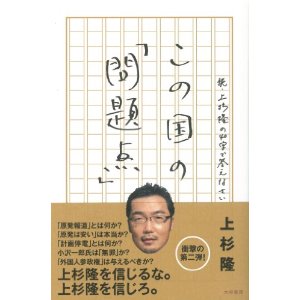 続・上杉隆の40字で答えなさい
この国の
「問題点」
上杉 隆
衝撃の
第二弾!
「原発報道」とは何か?
「原発は安い」は本当か?
「計画停電」とは何か?
小沢一郎氏は「無罪」か?
「外国人参政権」は与えるべきか?
上杉隆を信じるな。
上杉隆を信じろ。
大和書房